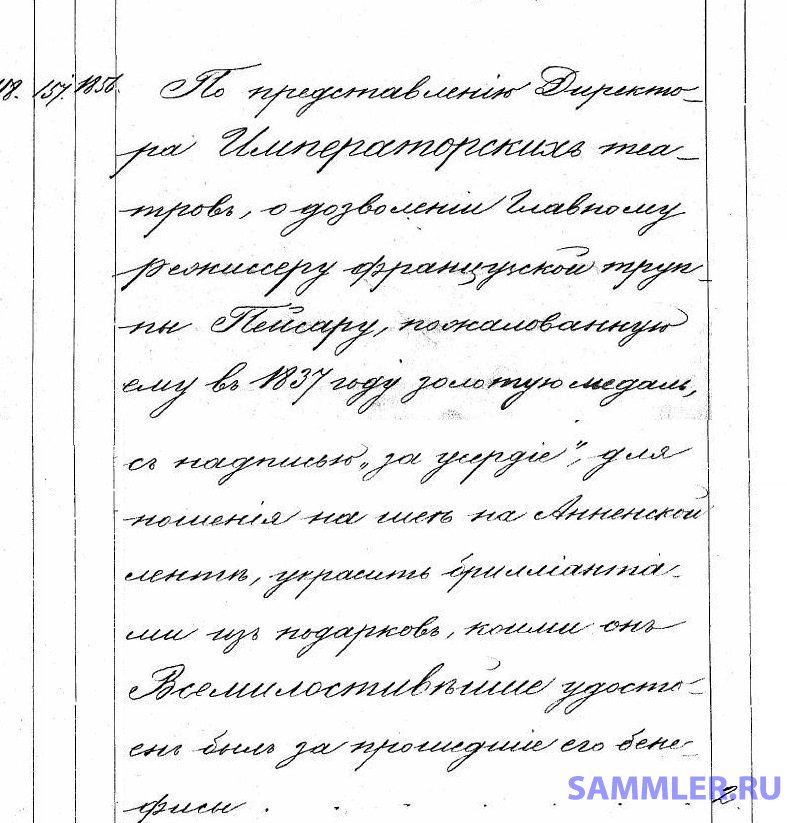 118. 157. 1856. По представленію Директо-
ра Императорскихъ теа-
тровъ, о дозволеніи Главному
режиссеру французской труп-
пы Пейсару, пожалованную
ему въ 1837 году золотую медаль,
съ надписью „за усердіе“, для
ношенія на шеѣ на Анненской
лентѣ, украсить брилліанта-
ми изъ подарковъ, коими онъ
Всемилостивѣйше удосто-
енъ былъ за прошедшіе его бене-
фисы . . . . . . 2.
SAMMLER.RU